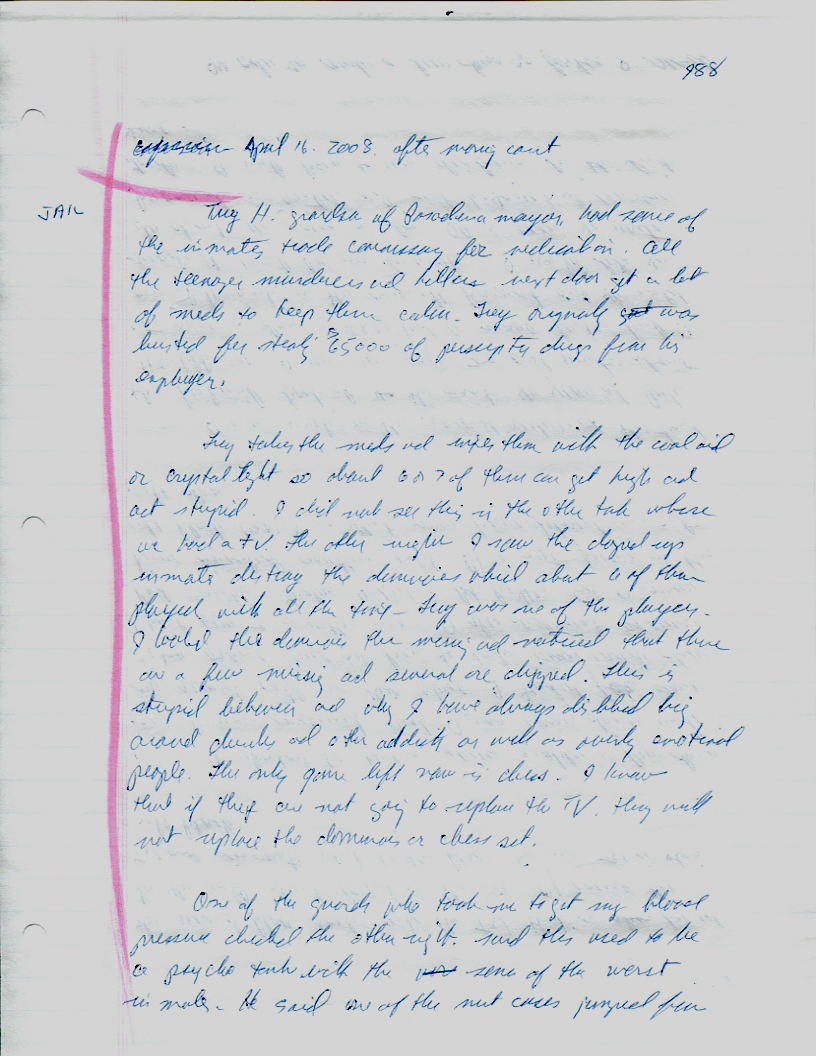 988
April 16. 2008. after morning count
JAIL
Trey H. grandson of Pasadena mayor, had some of
the inmates trade commissary for medication. All
the teenage murderers and killers next door get a lot
of meds to keep them calm. Trey originally got was
busted for stealing $65000 of prescription drugs from his
employer.
Trey takes the meds and mixes them with the cool aid
or crystal light so about 6 or 7 of them can get high and
act stupid. I did not see this in the other tank where
we had a TV. The other night I saw the doped up
inmates destroy the dominoes which about 6 of them
played with all the time - Trey was one of the players.
I looked the dominoes the morning and noticed that there
are a few missing and several are chipped. This is
stupid behavior and why I have always disliked being
around drunks and other addicts as well as overly emotional
people. The only game left now is chess. I know
that if they are not going to replace the TV. they will
not replace the dominoes or chess set.
One of the guards who took me to get my blood
pressure checked the other night. said this used to be
a psycho tank with the some of the worst
inmates. He said one of the nut cases jumped from